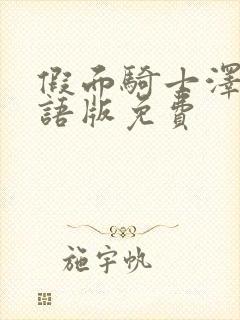 假面騎士澤
語版免費
施宇帆